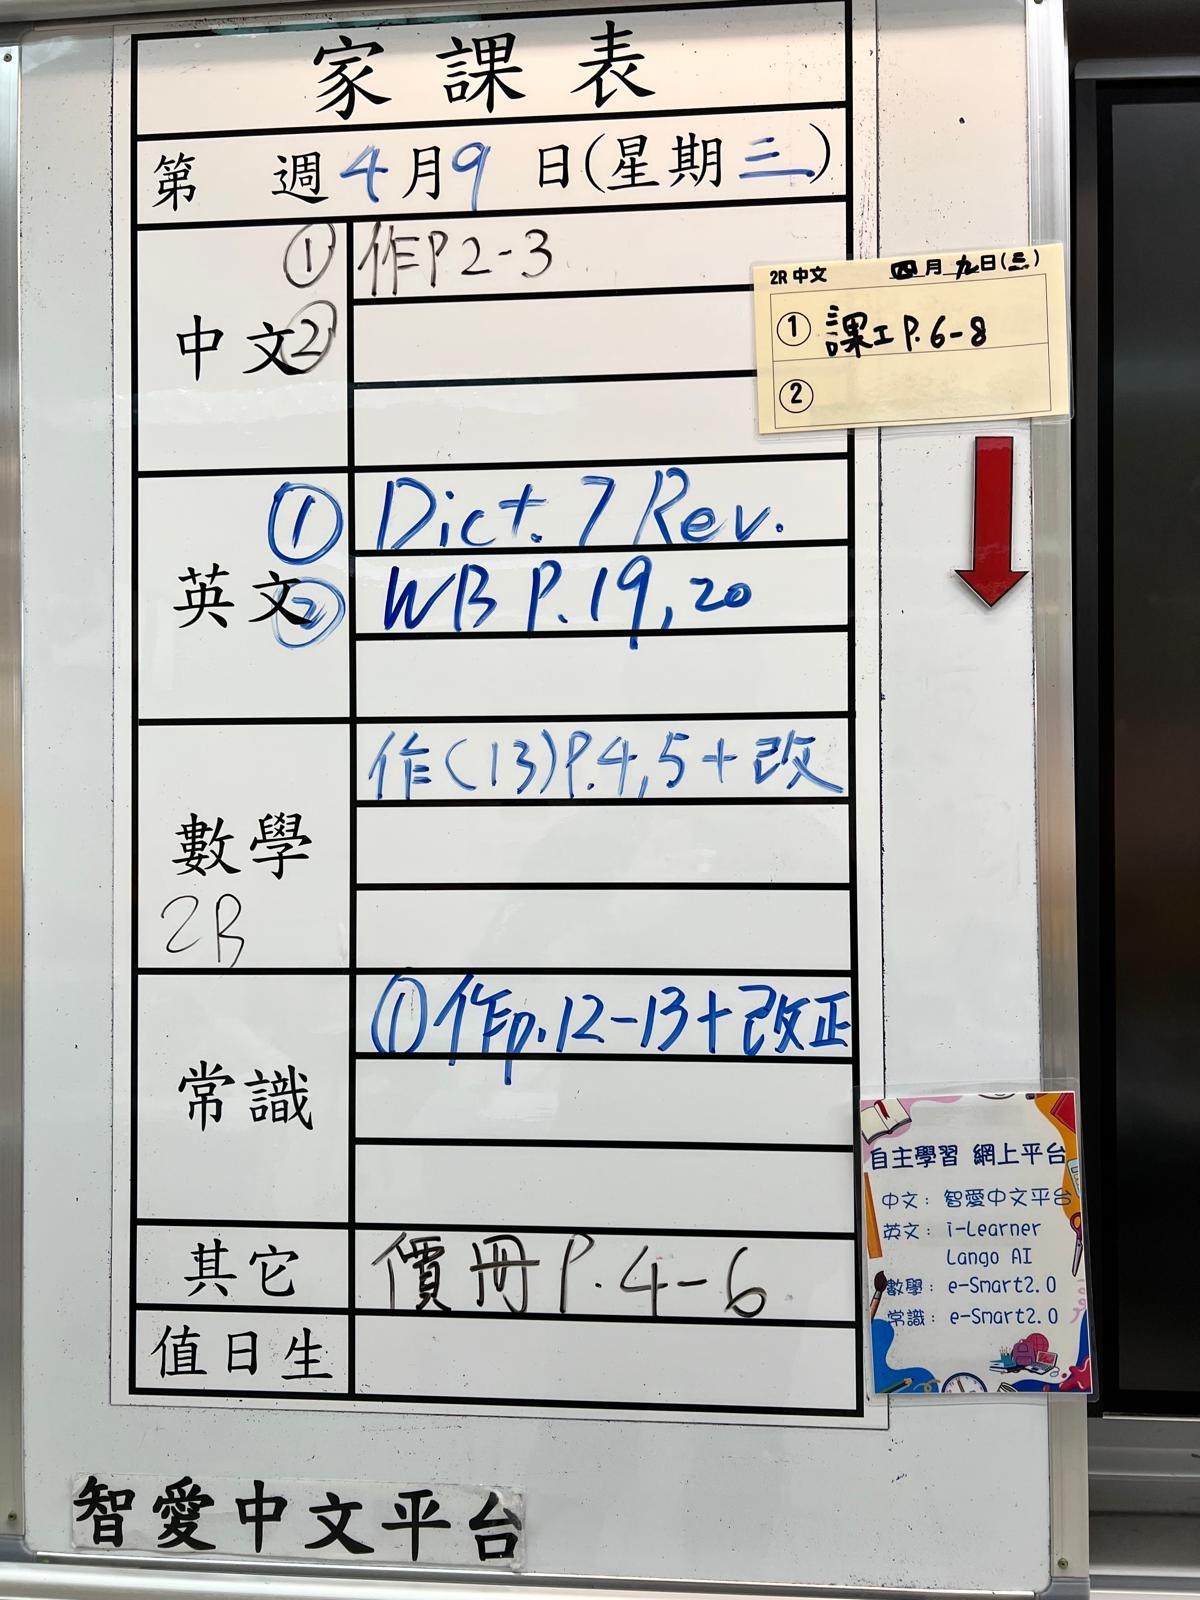 家課表
第 週4月9日(星期三)
中文
① 作P2-3
②
2R 中文 四月九日(三)
① 課工 P.6-8
②
英文
① Dict. 7 Rev.
② WB P.19,20
數學
2R
作(13)P.4,5+改
常識
①作p.12-13+改正
其它
價冊P.4-6
值日生
自主學習 網上平台
中文：智愛中文平台
英文：i-Learner
Lango AI
數學：e-Smart2.0
常識：e-Smart2.0
智愛中文平台